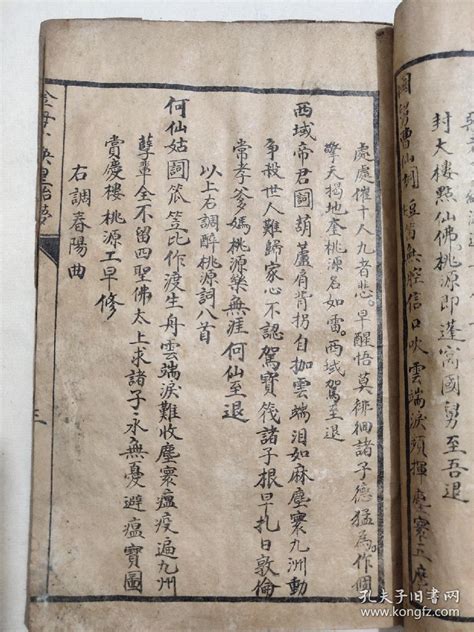 國舅曹仙詞 短笛無腔信口吹雲端淚頻揮塵寰
封大樓點仙佛桃源即蓬窩國舅至吾退
處處催十人九者悲早醒悟莫徘徊諸子德猛為作個
擎天揭地奎桃源名如雷西域駕至退
西域帝君詞 葫蘆肩背拐自拋雲端泪如麻塵寰九洲動
爭殺世人難歸家心不認駕寶筏諸子根早扎日敦倫
常孝爹媽桃源樂無涯何仙至退
以上右調醉桃源詞八首
何仙姑詞 笊笠比作渡生舟雲端淚難收塵寰瘟疫遍九州
孽軍全不留四聖佛太上求諸子永無憂避瘟寶圖
賞慶樓桃源工早修
右調春陽曲
孔夫子旧书网
www.kongfz.com